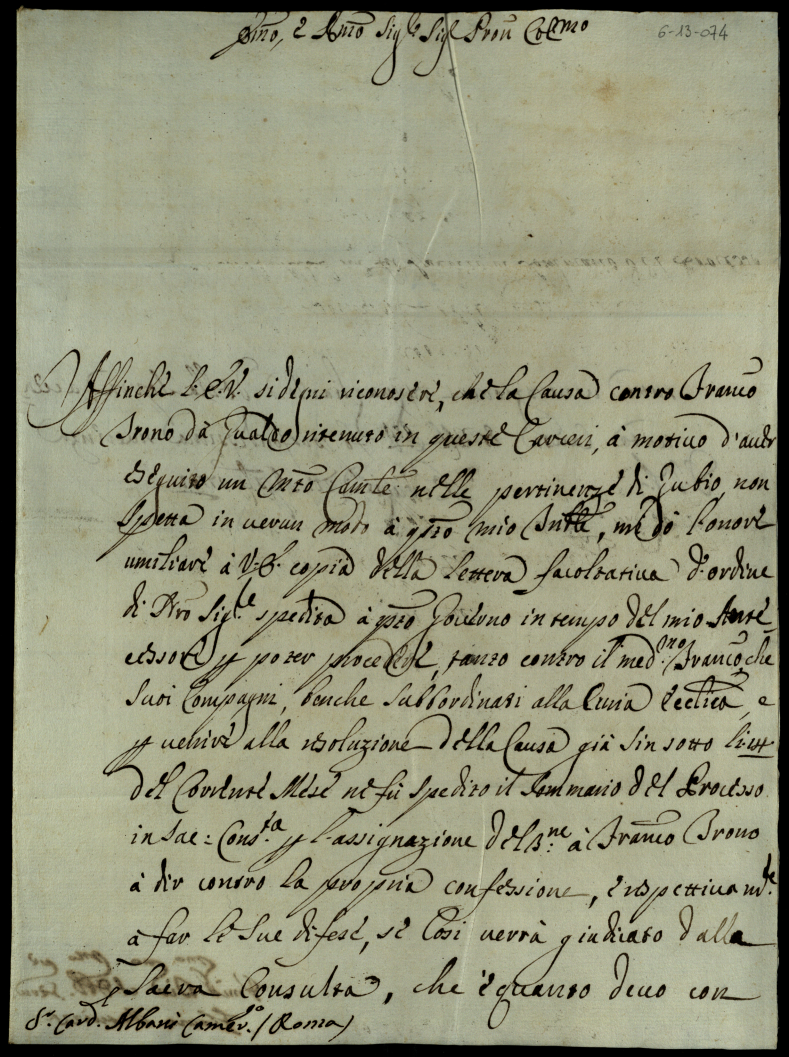 Emo, e Rmo Sigre Sigr Pron Colmo
6-13-074
Affinche l'E.V. si degni riconoscere, che la Causa contro Franco
Brono da Gualdo ritenuto in queste Carceri, à motivo d'aver
eseguito un Mto nelle pertinenze di Gubio, non
spetta in verun modo à qsto mio, me dò l'onore
umiliare à V.E. copia della lettera facoltativa d'ordine
di Ntro Sigre spedita à qsto Governo in tempo del mio Ante
cessore p poter procedere, tanto contro il med:mo Franco, che
suoi Compagni, benche subbordinati alla Curia Ecclica, e
p venire alla resoluzione della Causa già sin sotto li
del Corrente Mese ne fù spedito il Sommario del Processo
in Sac: Consta p l'assignazione del ne à Franco Brono
à dir contro la propria confessione, e respettivamte
a far le sue difese, se Così verrà giudicato dalla
Sacra Consulta, che è quanto devo con
Sr. Card. Albani Camerlo. (Roma)